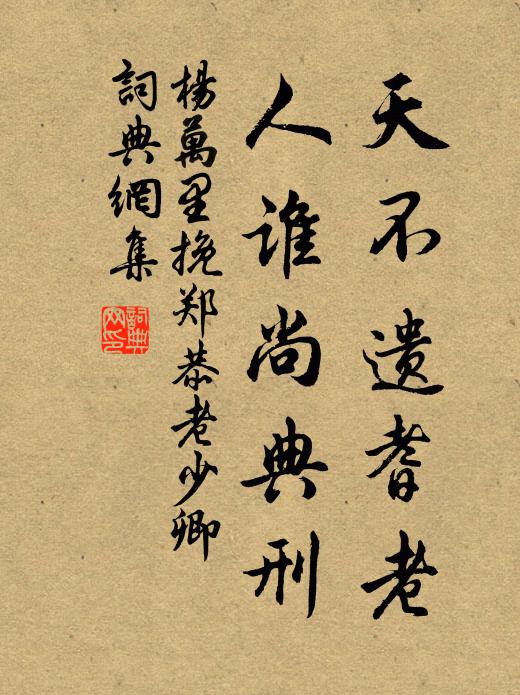 天不遗耆老
人谁尚典刑
楊萬里挽郑恭老少卿
詞典網集
詞典网印